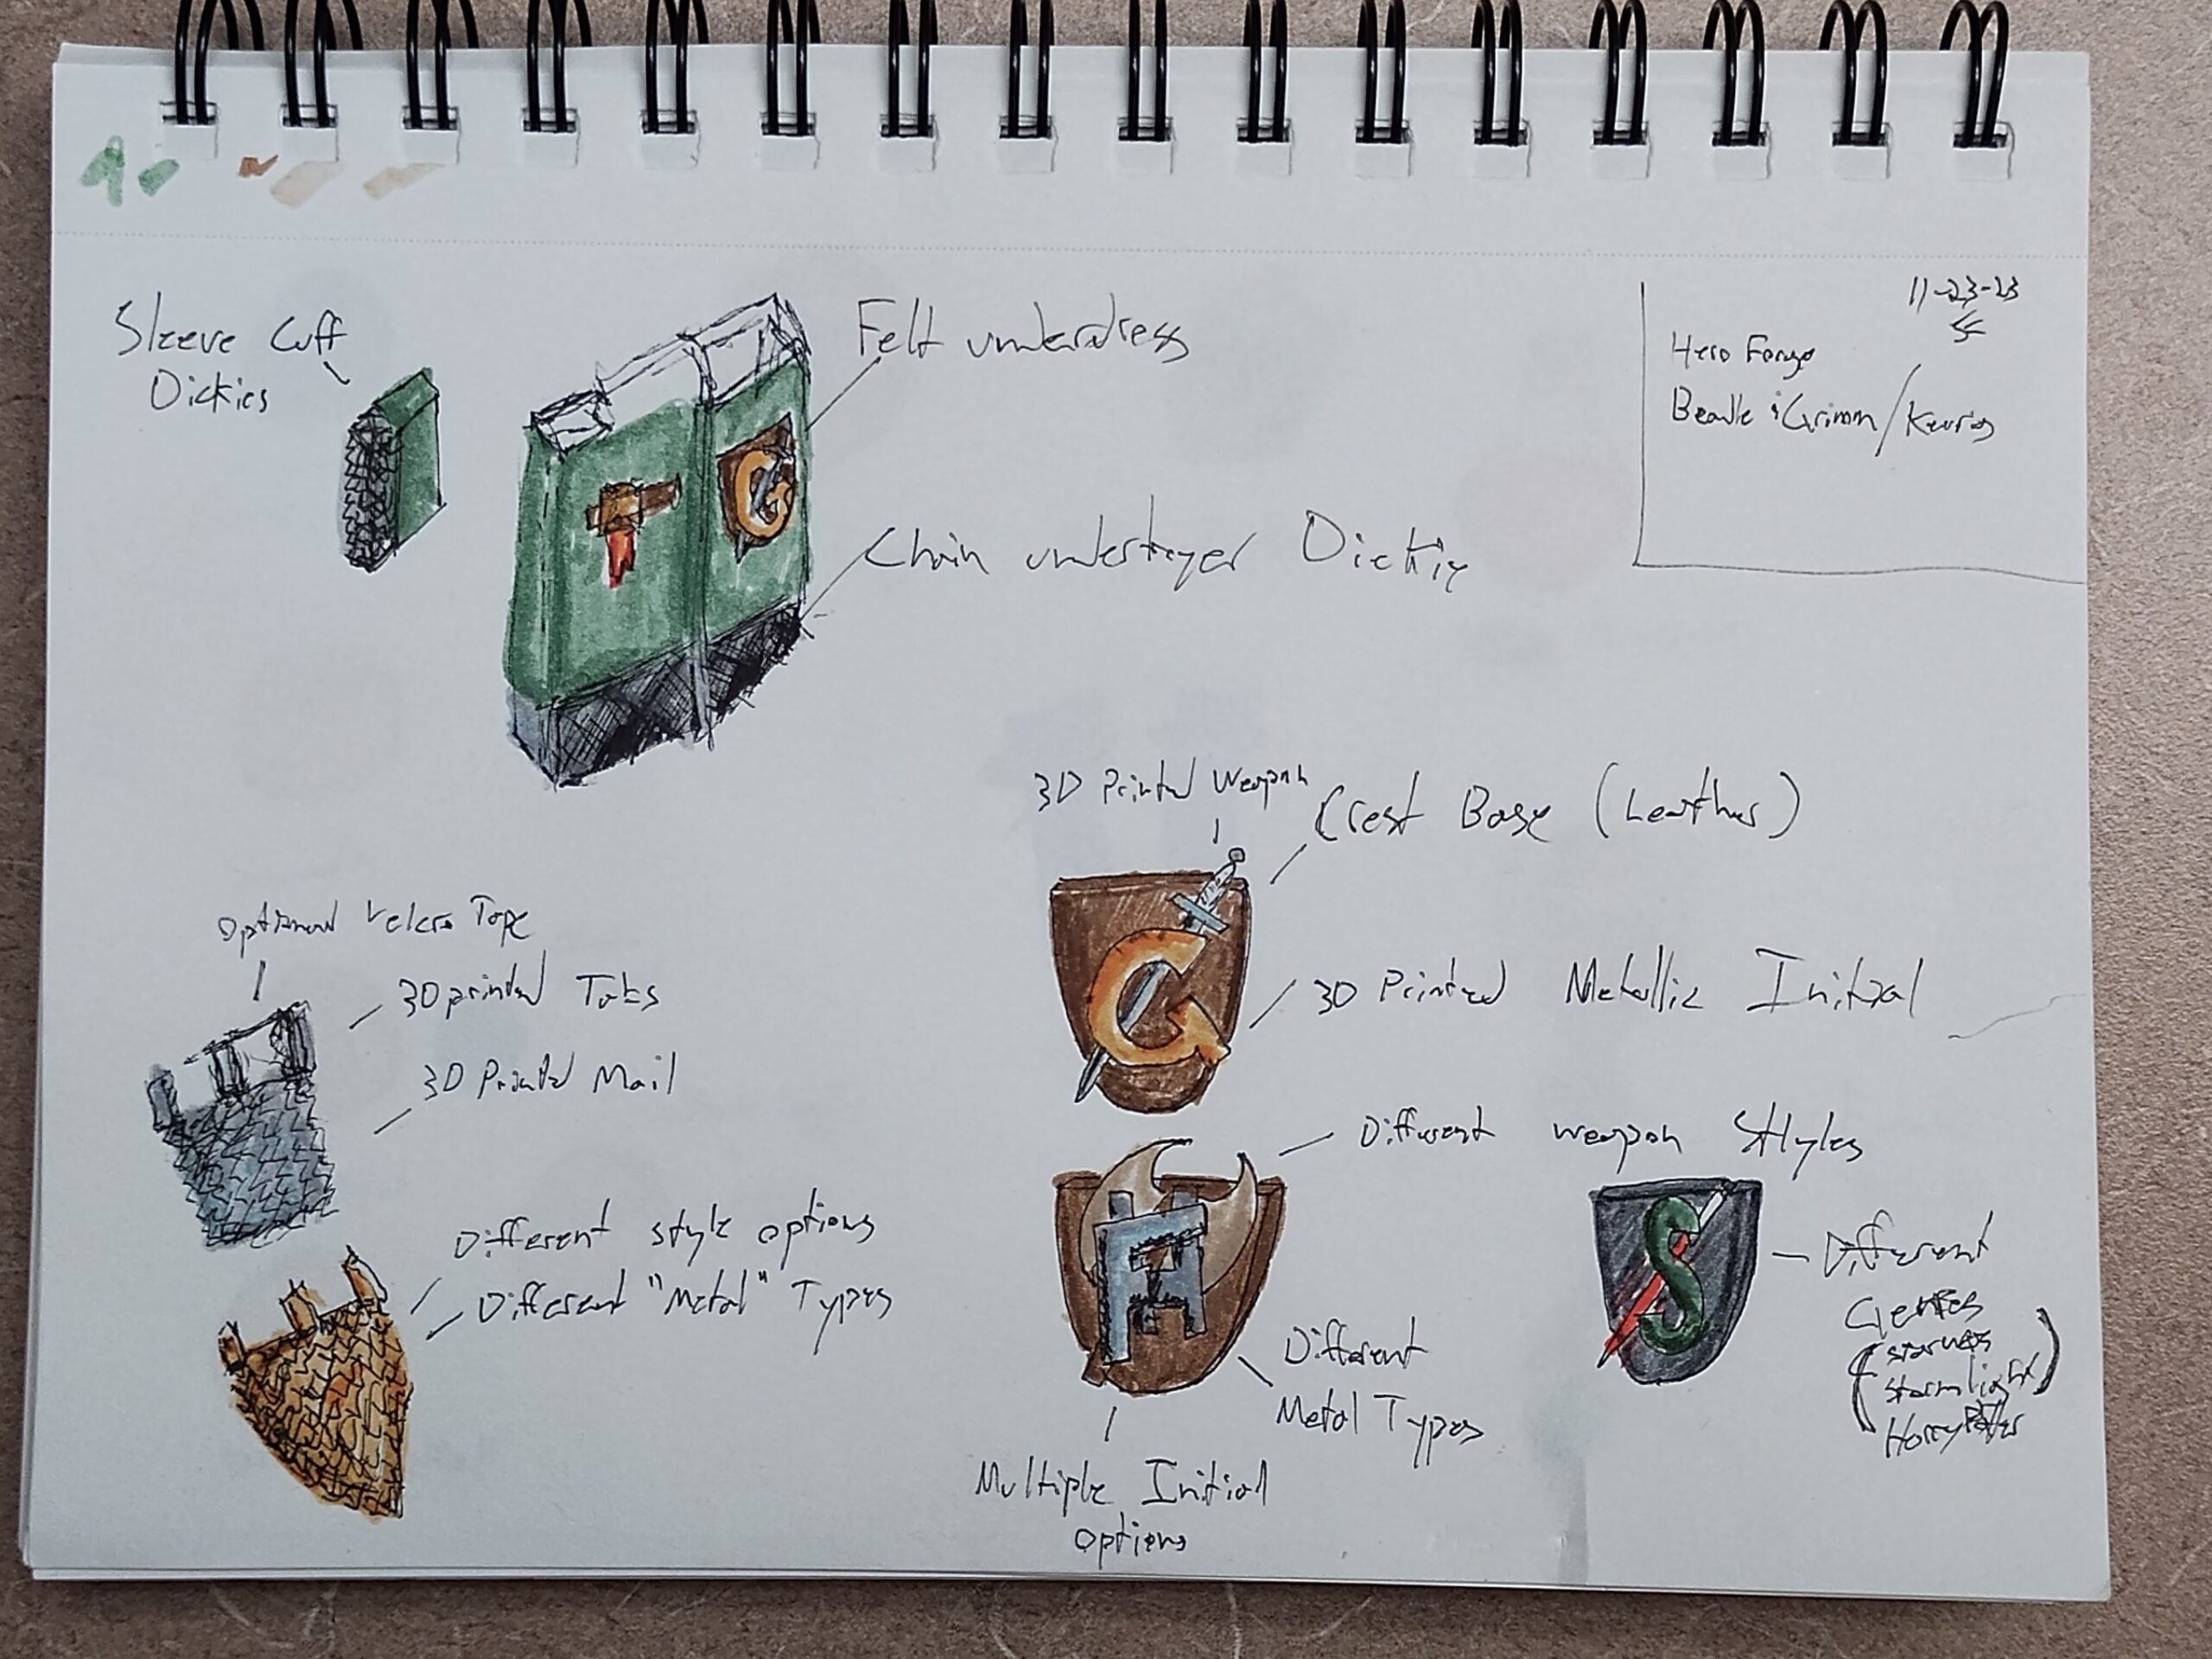 11-23-23
Hero Forge
Beadle & Grimm /
Sleeve Cuff
Dickies
Felt underdress
Chain underlayer Dickie
3D Printed Weapon
Crest Base (Leather)
G
3D Printed Metallic Initial
Optional Velcro Tape
3D printed Tabs
3D Printed Mail
Different style options
Different "Metal" Types
Different weapon Styles
A
Different
Metal Types
Multiple Initial
options
S
Different
Genres
(starwars
stormlight)
Harry Potter